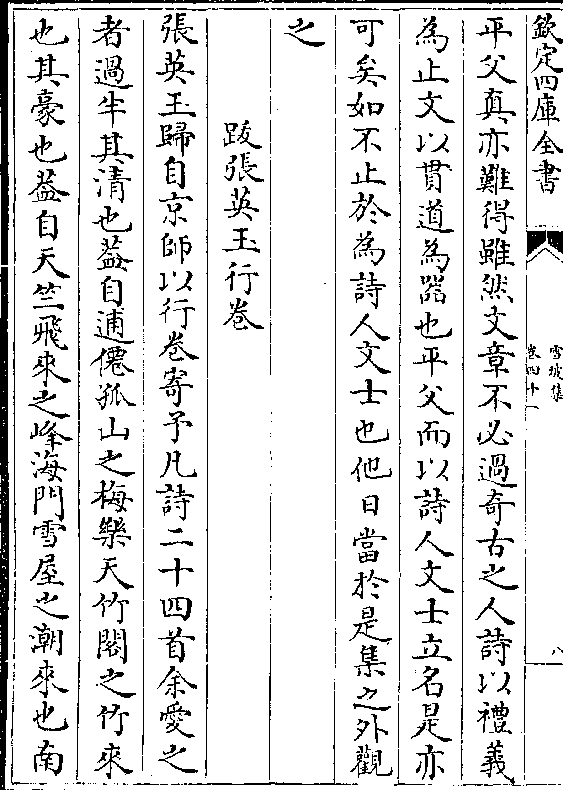 欽定四庫全書
雪坡集
卷四十一
八
平父真亦難得雖然文章不必過奇古之人詩以禮義
為止文以貫道為器也平父而以詩人文士立名是亦
可矣如不止於為詩人文士也他日當於是集之外觀
之
跋張英玉行卷
張英玉歸自京師以行卷寄予凡詩二十四首余愛之
者過半其清也葢自逋僊孤山之梅樂天竹閣之竹來
也其豪也葢自天竺飛來之峰海門雪屋之潮來也南